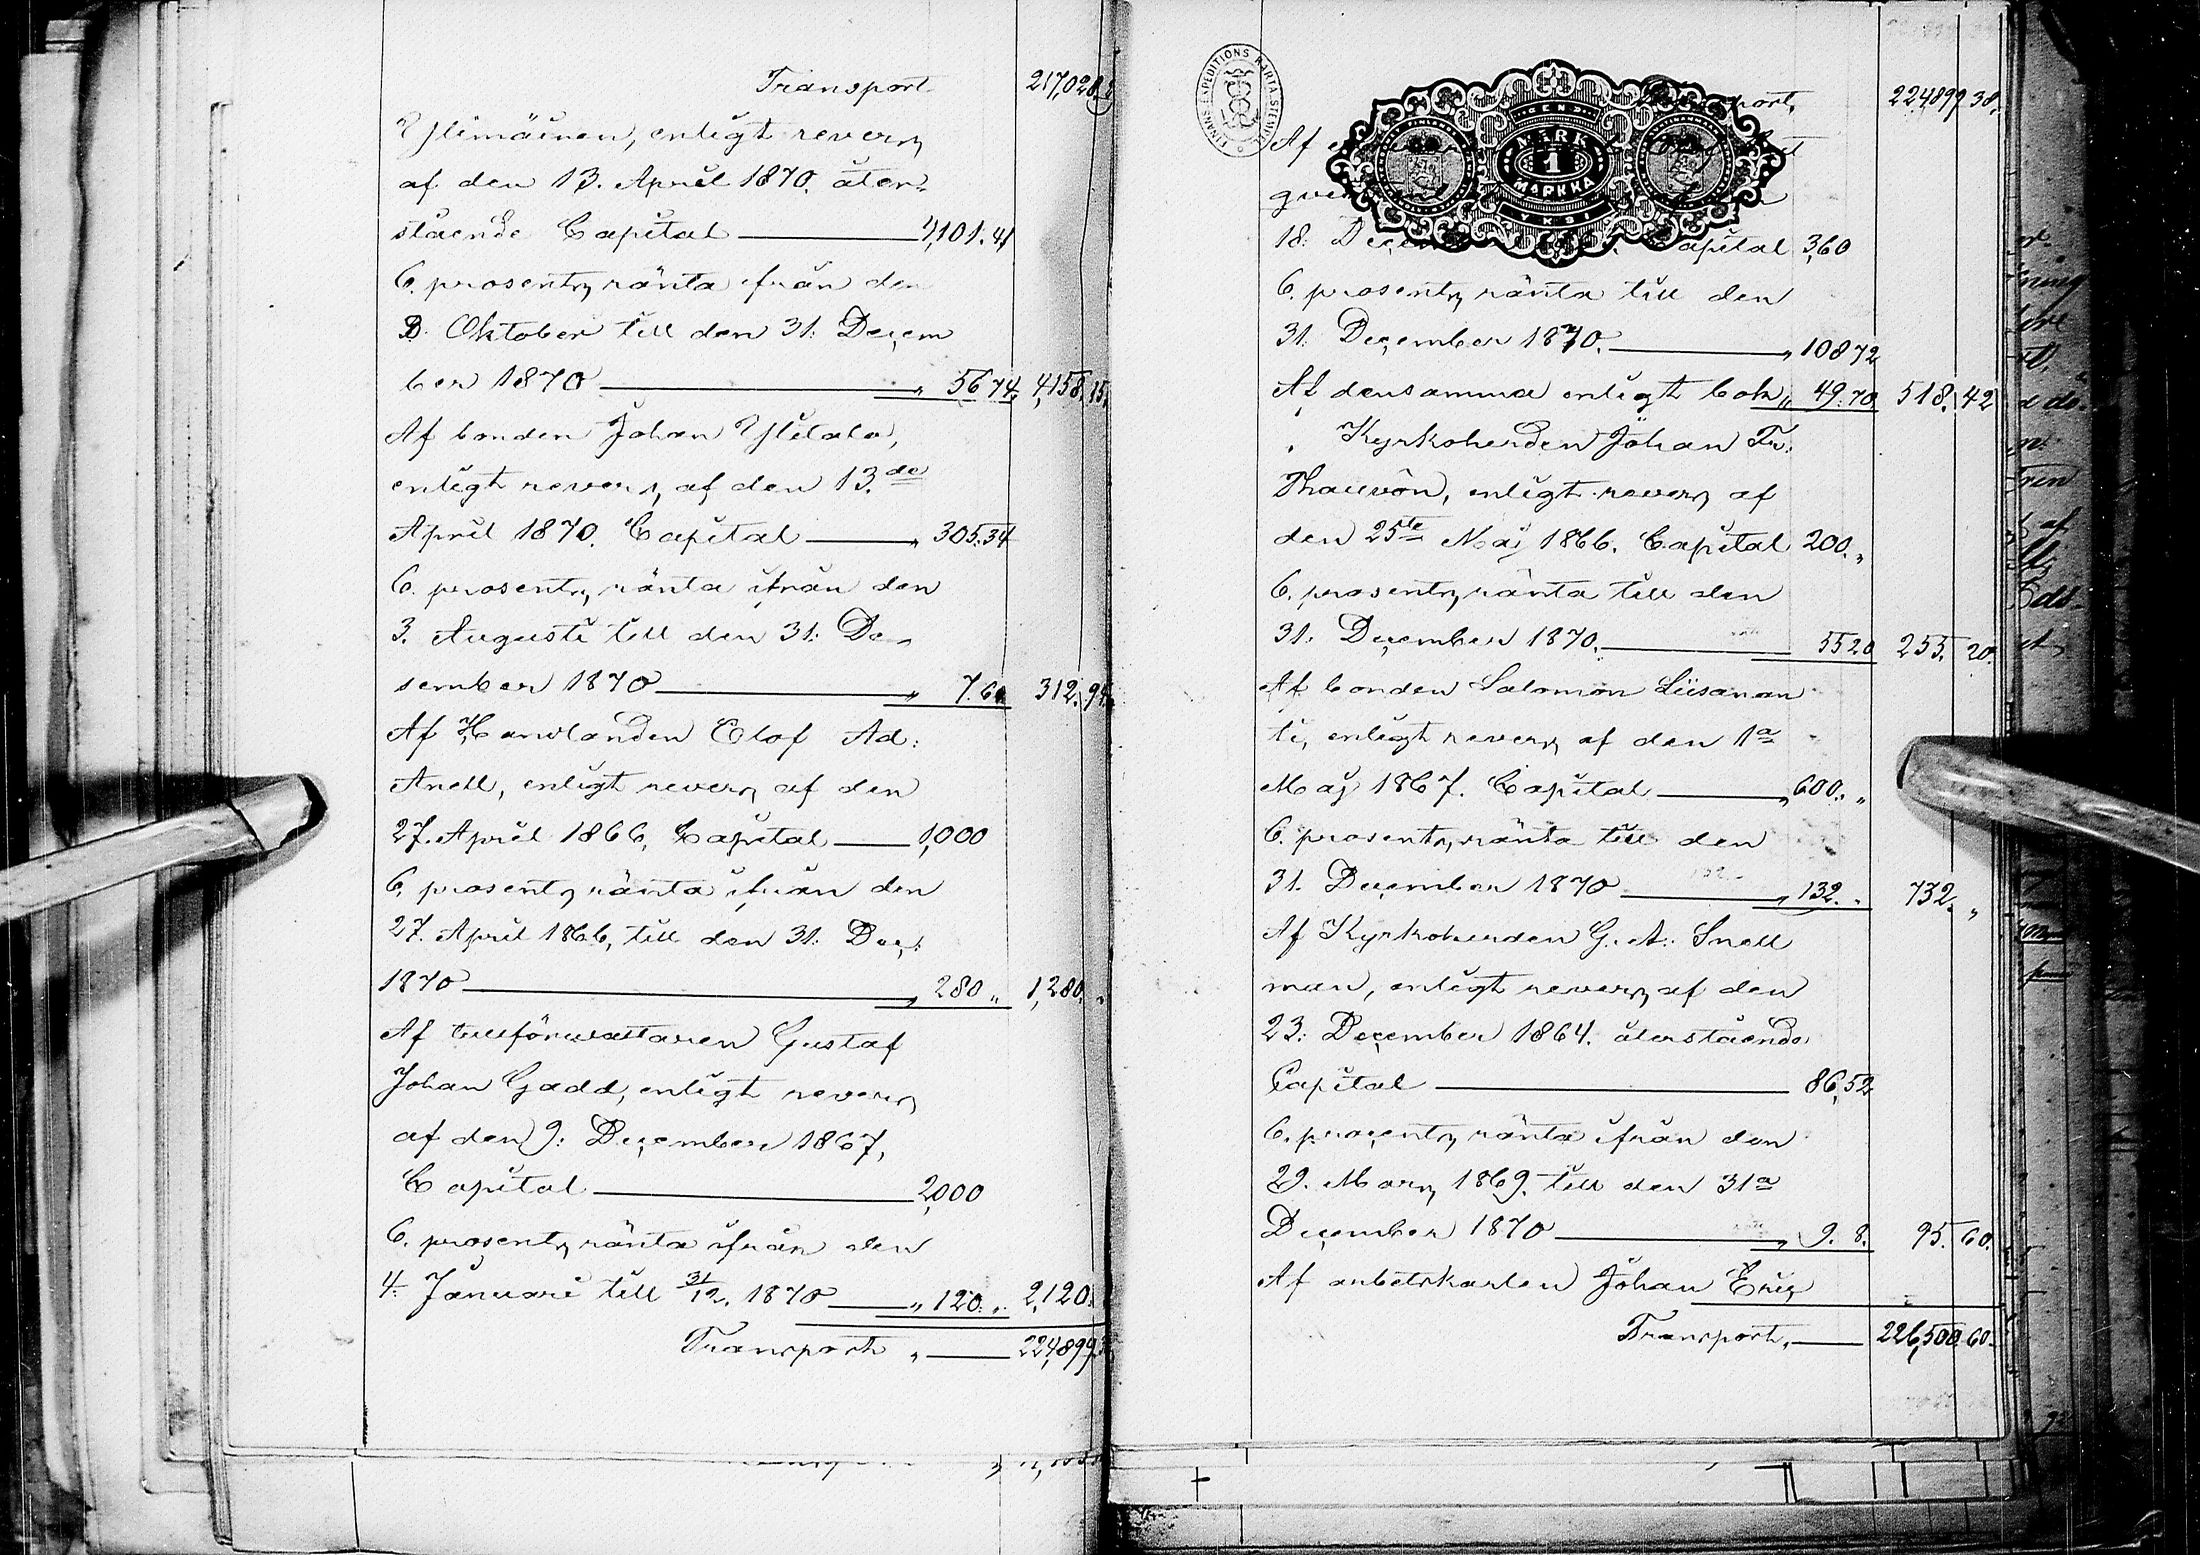 Transport 217,028
Ylimäinen, enligt revers
af den 13. April 1870. åter-
stående Capital 4,101. 41
6. prosents ränta ifrån den
8. Oktober till den 31. Decem
ber 1870 „ 56 74. 4,158. 15.
Af bonden Johan Ylitalo,
enligt revers, af den 13.de
April 1870. Capital „ 305. 34
6. prosents ränta ifrån den
3. Augusti till den 31. De-
sember 1870 „ 7. 60. 312. 94.
Af Handlanden Olof Ad:
Anell, enligt revers af den
27. April 1866, Capital 1,000
6. prosents ränta ifrån den
27. April 1866, till den 31. Dec:
1870 „ 280 „ 1,280. „
Af tullförvaltaren Gustaf
Johan Gadd, enligt revers
af den 9: December 1867,
Capital 2,000
6. prosents ränta ifrån den
4. Januari till 31/12. 1870 „ 120. „ 2,120.
Transport „ 224,899.
FINANS EXPEDITIONS KARTA STEMPEL
EN
MARK
1
MARKKA
YKSI
224,899 38.
Af
18: Capital 360
6. prosents ränta till den
31. December 1870. „ 108 72
Af densamma enligt bok „ 49. 70 518. 42
„ Kyrkoherden Johan Fr:
Thauvón, enligt revers af
den 25te Maj 1866. Capital 200. „
6. prosents ränta till den
31. December 1870. 55 20 255. 20.
Af bonden Salomon Liisanan
ti, enligt revers af den 1a
Maj 1867. Capital „ 600. „
6. prosents ränta till den
31. December 1870 „ 132. „ 732. „
Af Kyrkoherden G. A. Snell
man, enligt revers af den
23. December 1864. återstående
Capital 86,52
6. procents ränta ifrån den
29. Mars 1869. till den 31a
December 1870 „ 9. 8. 95. 60.
Af arbetskarlen Johan Eric
Transport, 226,500. 60.